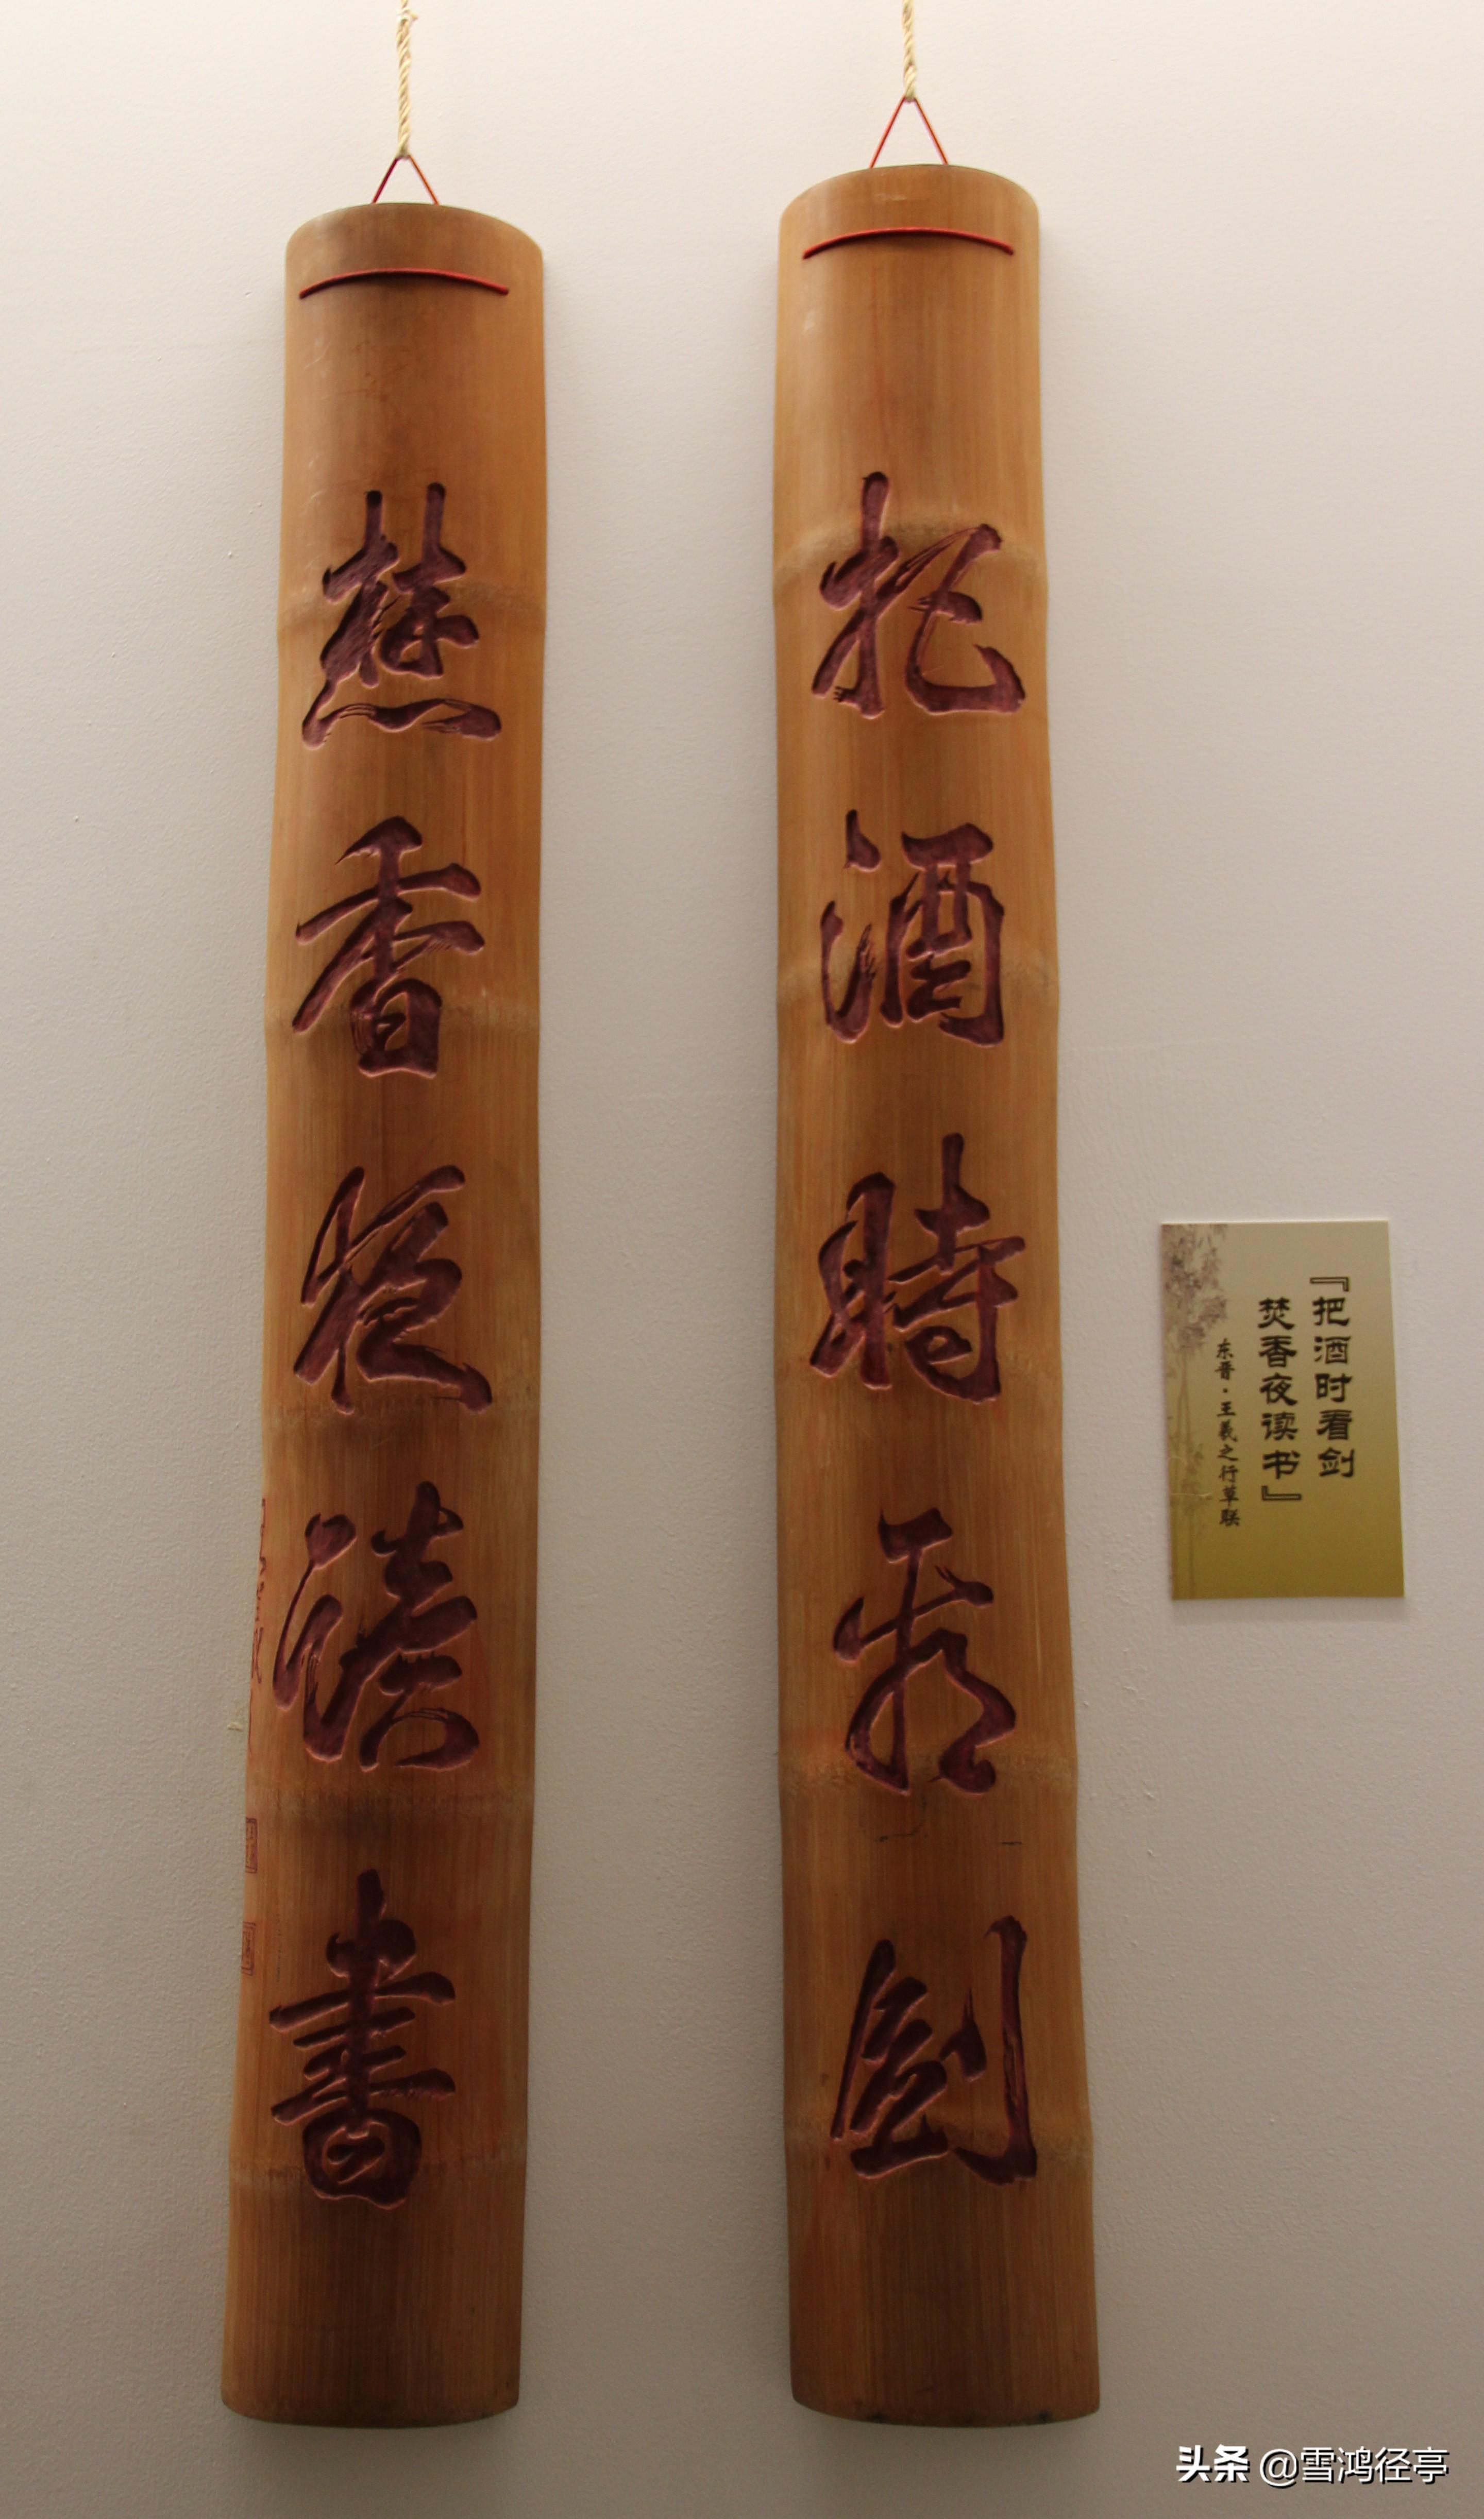 把酒時看劍
焚香夜讀書
『把酒时看剑
焚香夜读书』
东晋·王羲之行草联
头条 @雪鸿径亭